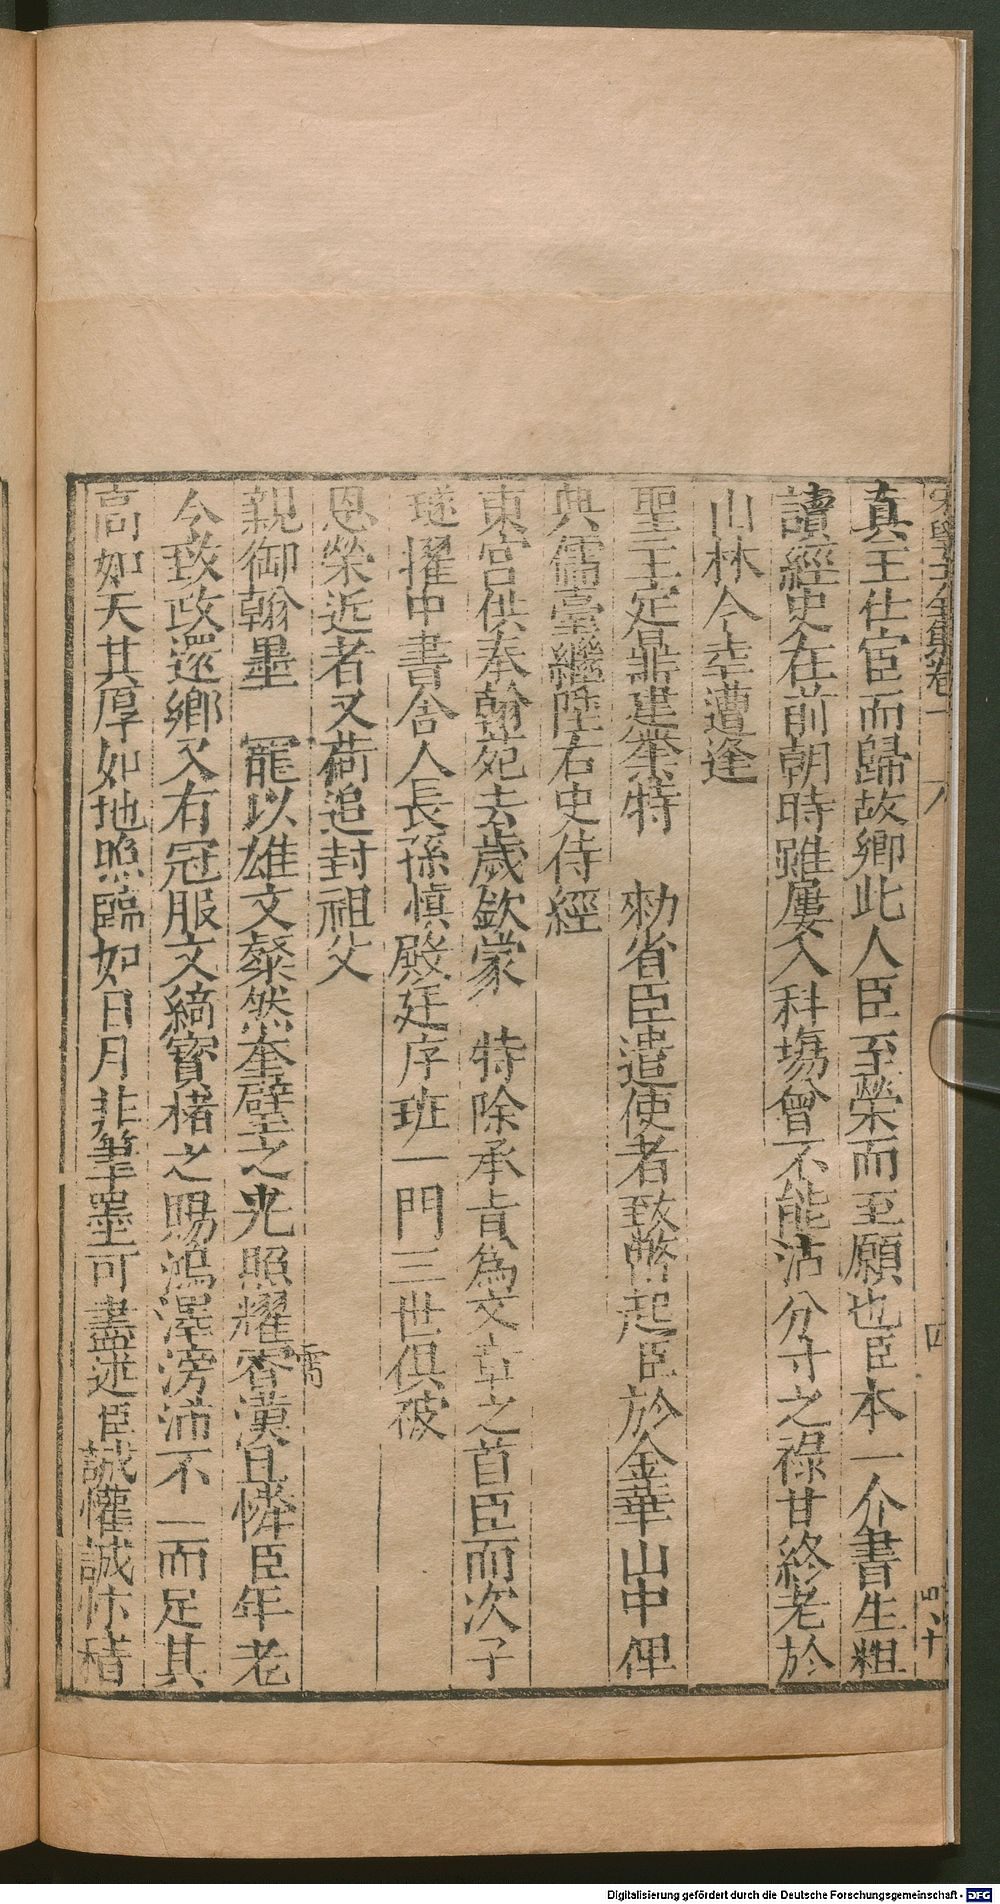 真王仕宦而歸故鄉此人臣至榮而至願也臣本一介書生粗
讀經史在前朝時雖屢入科場曾不能沾分寸之祿甘終老於
山林今幸遭逢
聖主定鼎建業特 勑省臣遣使者致幣起臣於金華山中俾
典儒臺繼陞右史侍經
東宮供奉翰苑去歲欽蒙 特除承旨為文章之首臣而次子
璲擢中書舍人長孫慎殿廷序班一門三世俱被
恩榮近者又荷追封祖父
親御翰墨 寵以雄文粲然奎璧之光照耀霄漢且憐臣年老
霄
今致政還鄉又有冠服文綺寳楮之賜鴻澤滂沛不一而足其
高如天其厚如地照臨如日月非筆墨可盡述臣誠懽誠忭稽
八
四
四十
Digitalisierung gefördert durch die Deutsche Forschungsgemeinschaft - DFG